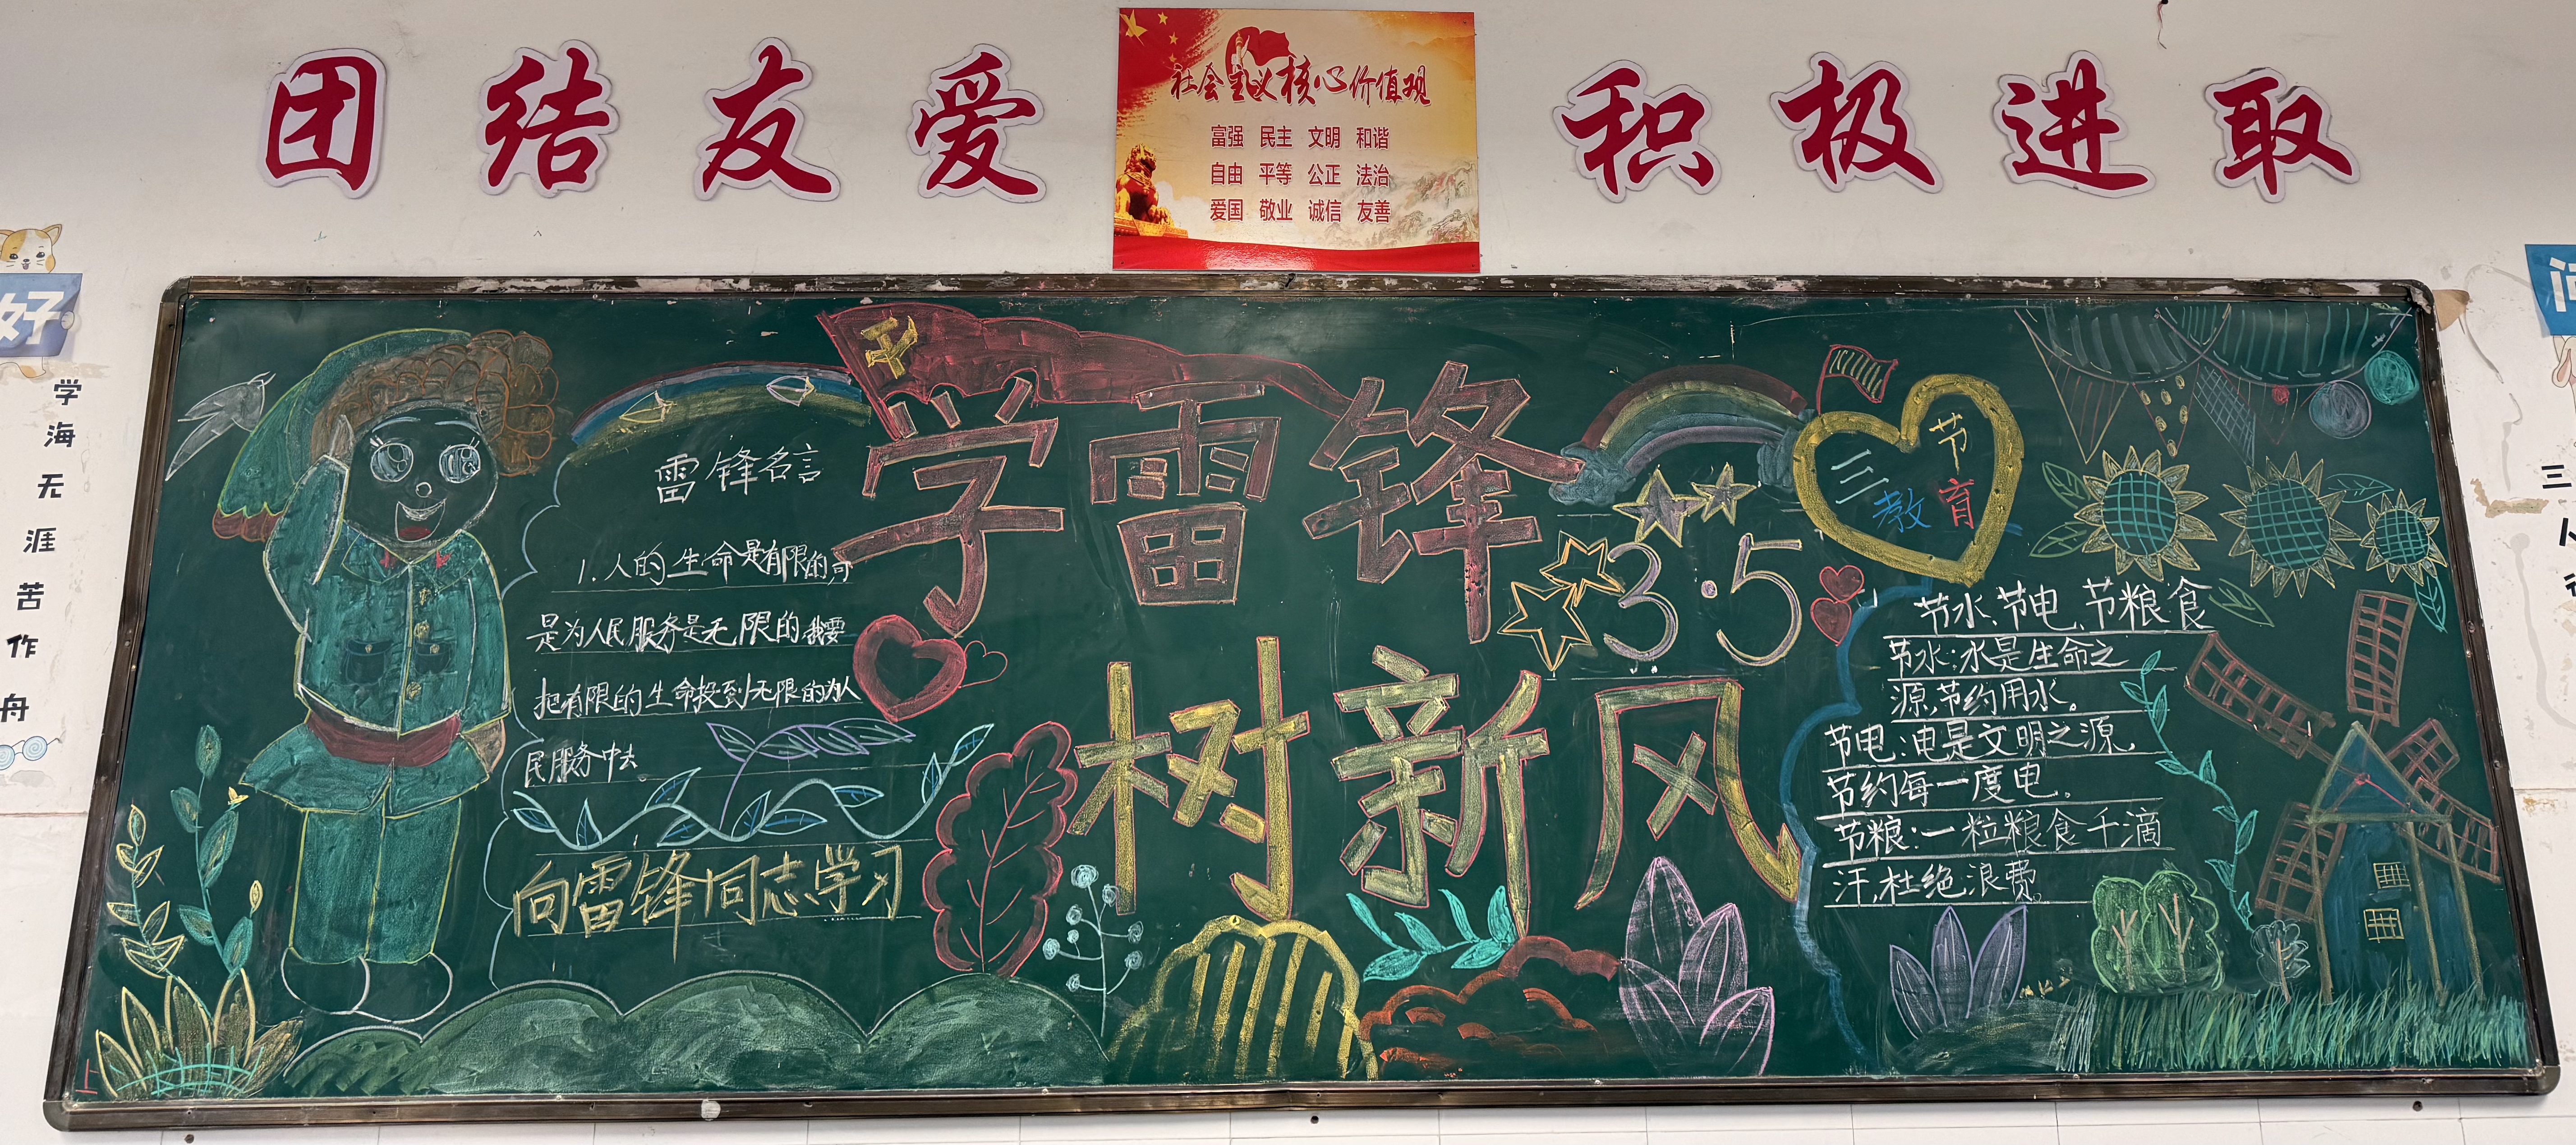 团结友爱
社会主义核心价值观
富强 民主 文明 和谐
自由 平等 公正 法治
爱国 敬业 诚信 友善
积极进取
好
学海无涯苦作舟
雷锋名言
1.人的生命是有限的可
是为人民服务是无限的我要
把有限的生命投到无限的为人
民服务中去。
向雷锋同志学习
学雷锋
3·5
树新风
三节
教育
节水、节电、节粮食
节水:水是生命之
源,节约用水。
节电:电是文明之源,
节约每一度电。
节粮:一粒粮食千滴
汗,杜绝浪费。
三人